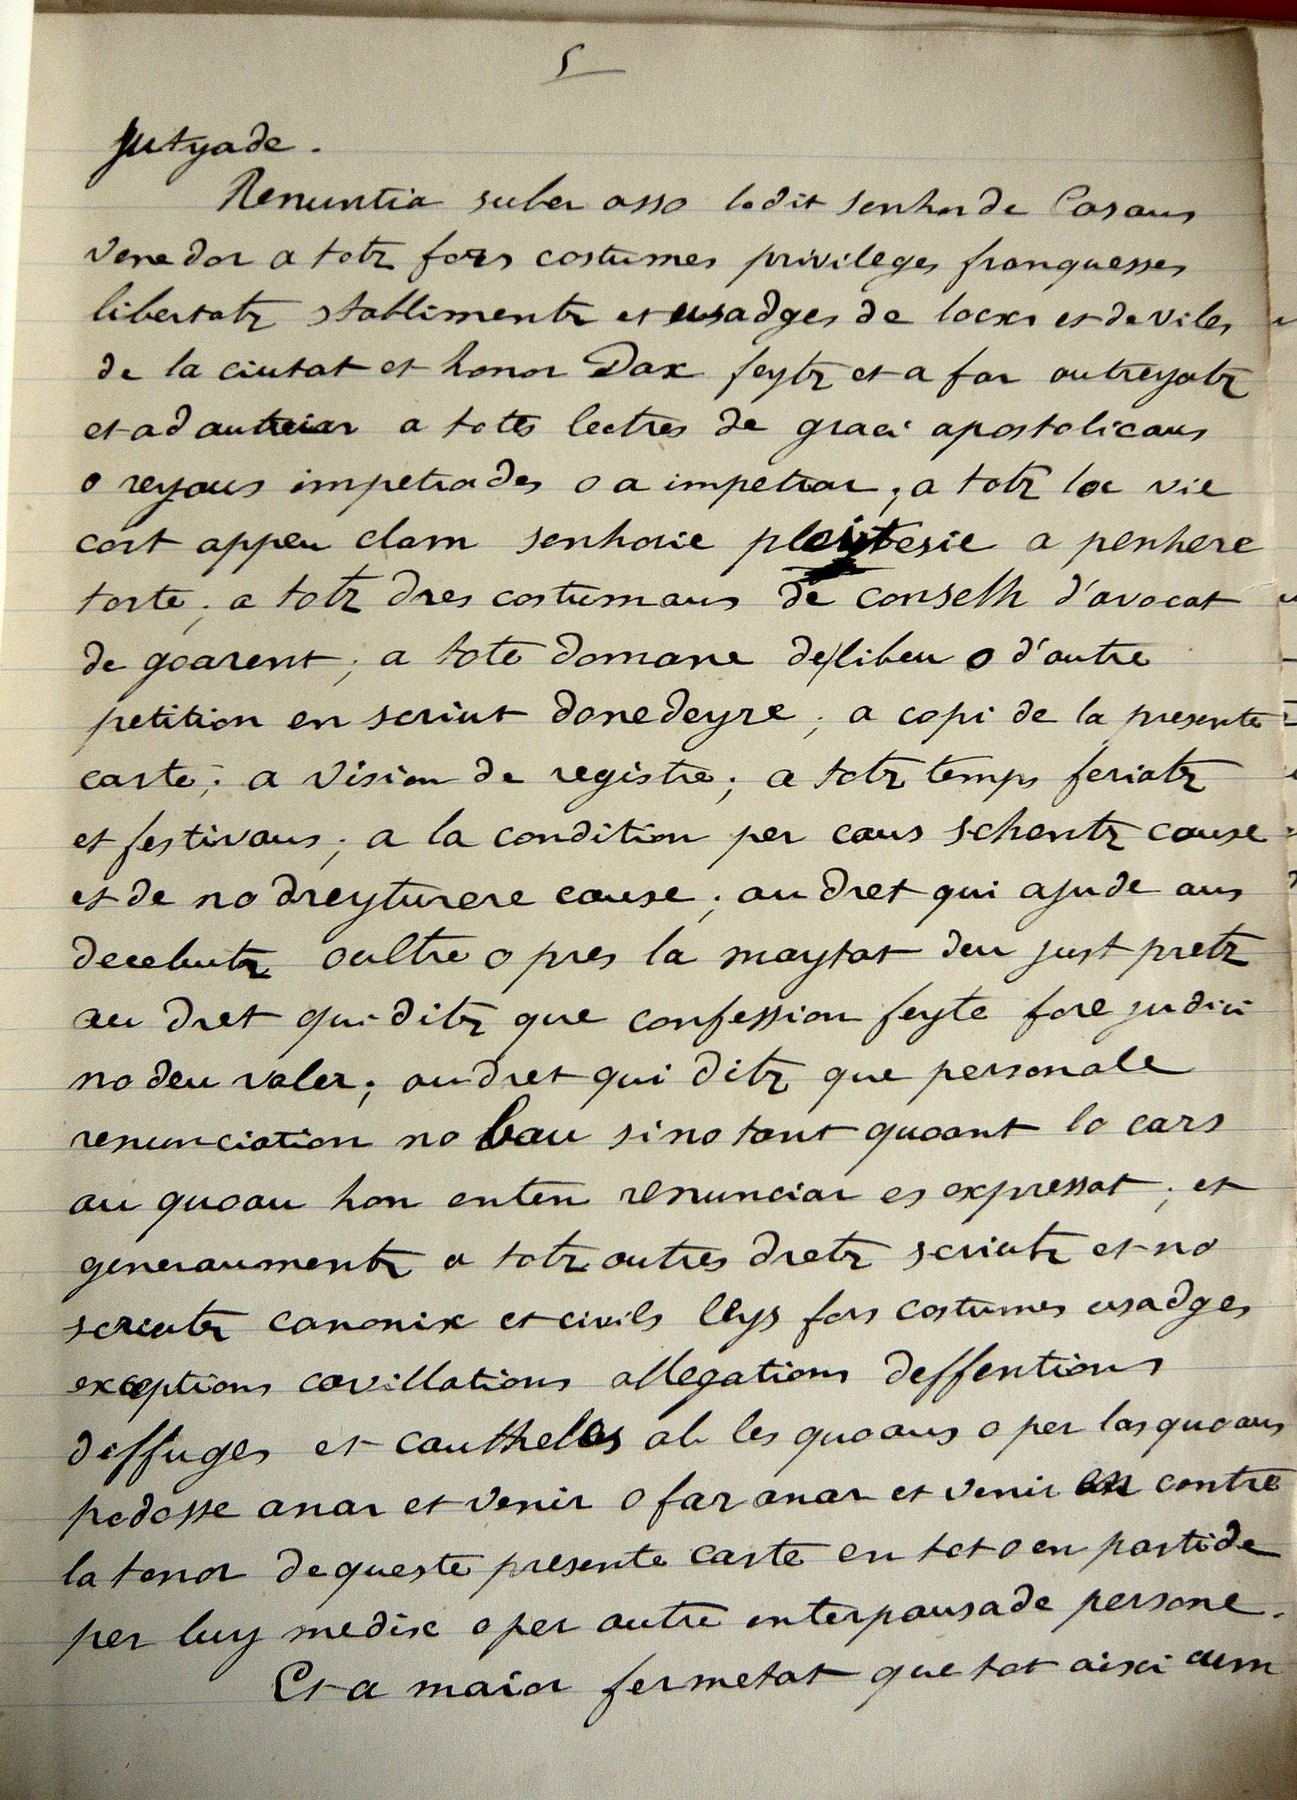 5
Jutyade.
Renuntia suber asso lodit senhor de Casaus
venedor a totz fors costumes privileges franquesses
libertatz stablimentz et usadges de locxs et de viles
de la ciutat et honor Dax feytz et a far autreyatz
et ad autreiar a totes lectres de graci apostolicaus
o reyaus impetrades o a impetrar; a totz loc vie
cort appeu clam senhorie pleytesie a penhere
torte; a totz dres costumaus de conselh d'avocat
de goarent; a tote domane de libeu o d'autre
petition en scriut donedeyre; a copi de la presente
carte; a vision de registre; a totz temps feriatz
et festivaus; a la condition per caus schentz cause
et de no dreyturere cause; au dret qui ajude aus
decebutz oultre o pres la maytat deu just pretz
au dret qui ditz que confession feyte fore judici
no deu valer; au dret qui ditz que personale
renunciation no bau sino tant quoant lo cars
au quoau hon enten renunciar es expressat; et
generaumentz a totz autres dretz scriutz et no
scriutz canonix et civils leys fors costumes usadges
exceptions cavillations allegations deffentions
deffuges et cautheles ab les quoaus o per las quoaus
podosse anar et venir o far anar et venir en contre
la tenor de queste presente carte en tot o en partide
per luy medix o per autre enterpausade persone.
Et a maior fermetat que tot aixi cum